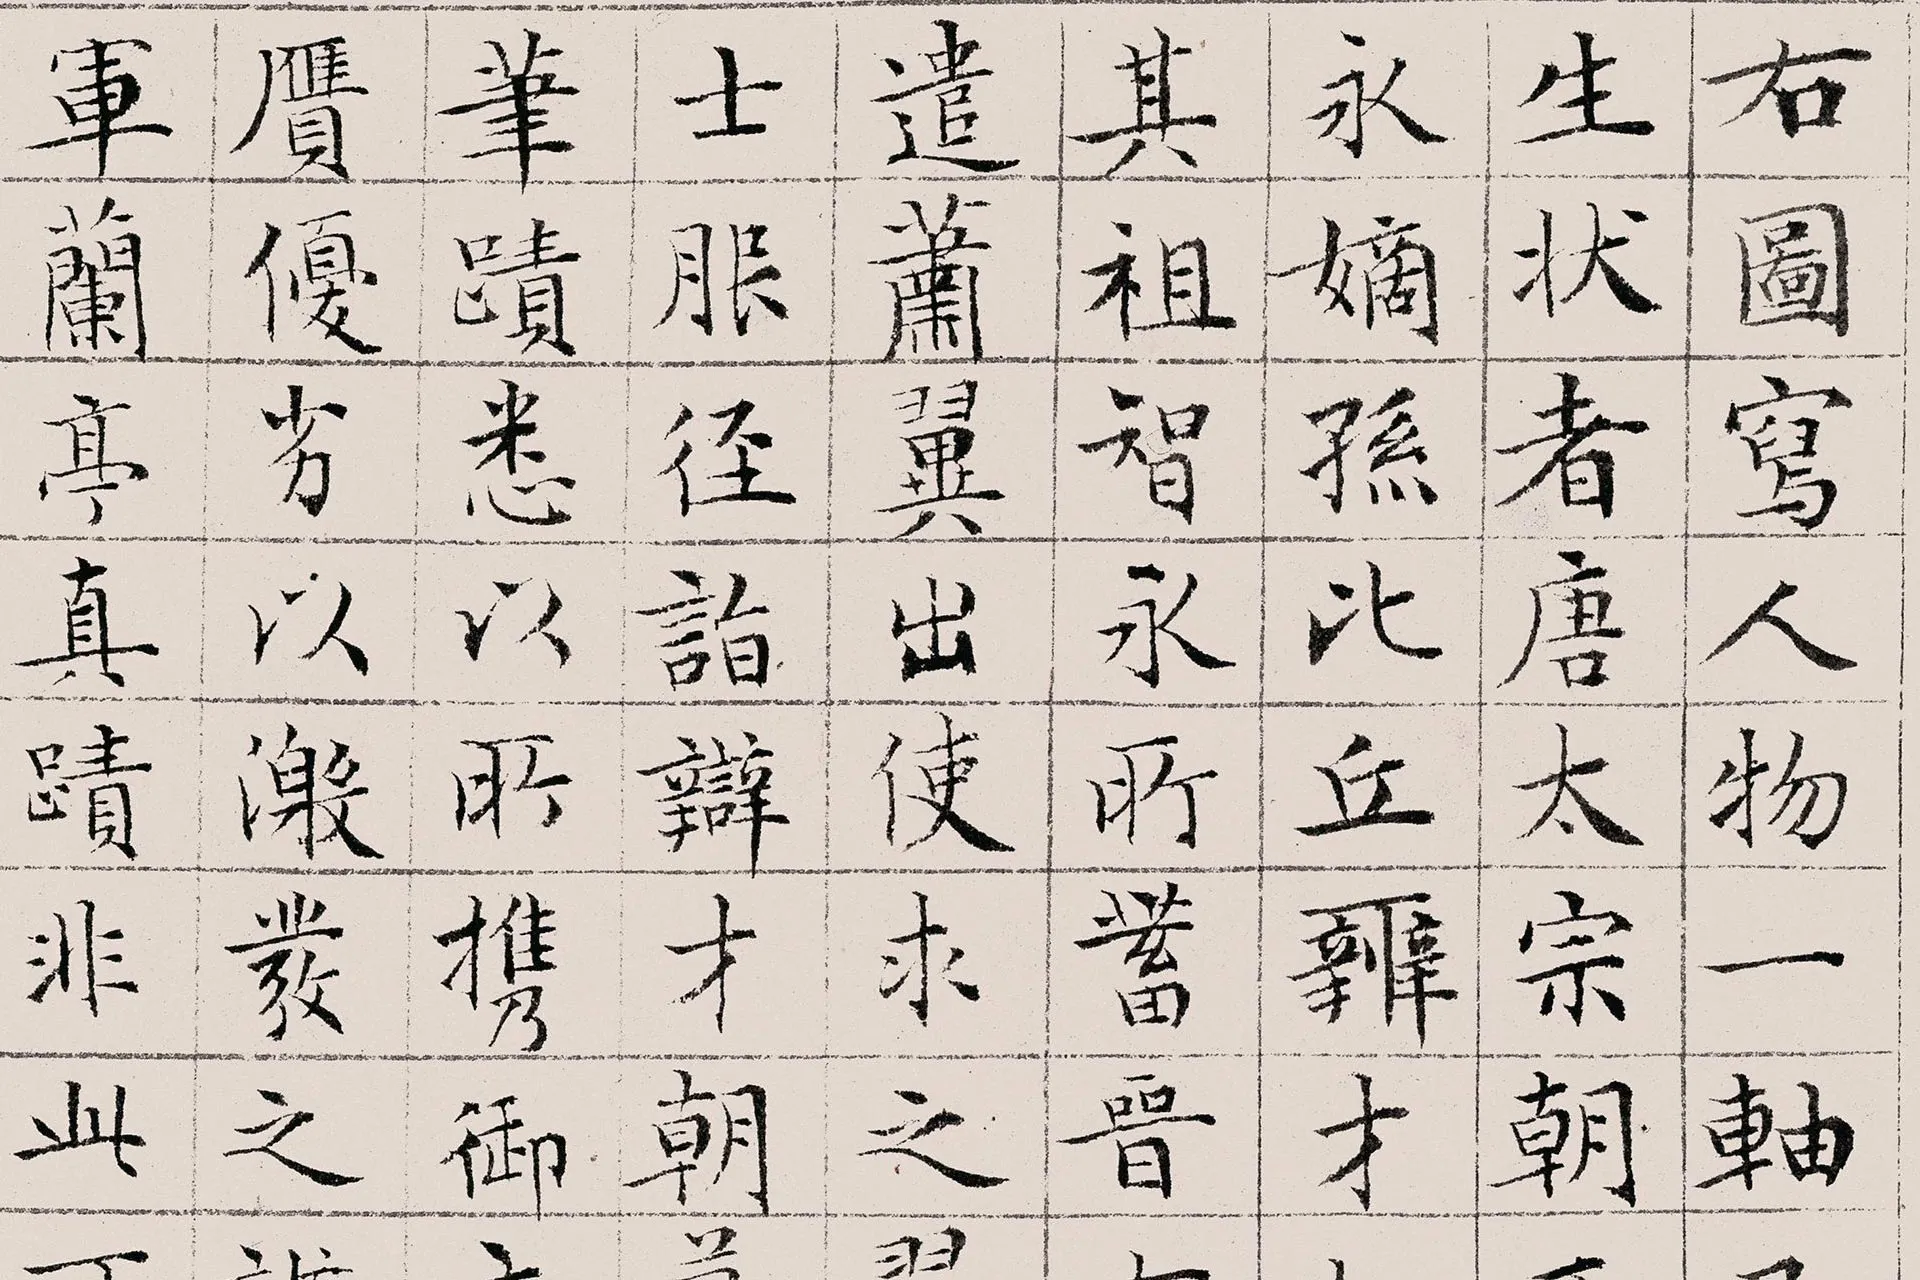 右圖寫人物一軸
生状者唐太宗朝
永嫡孫比丘辯才
其祖智永所蓄晉
遣蕭翼出使求之翌
士服径詣辯才朝
筆蹟悉以所携御
贗優劣以激發之
軍蘭亭真蹟非此